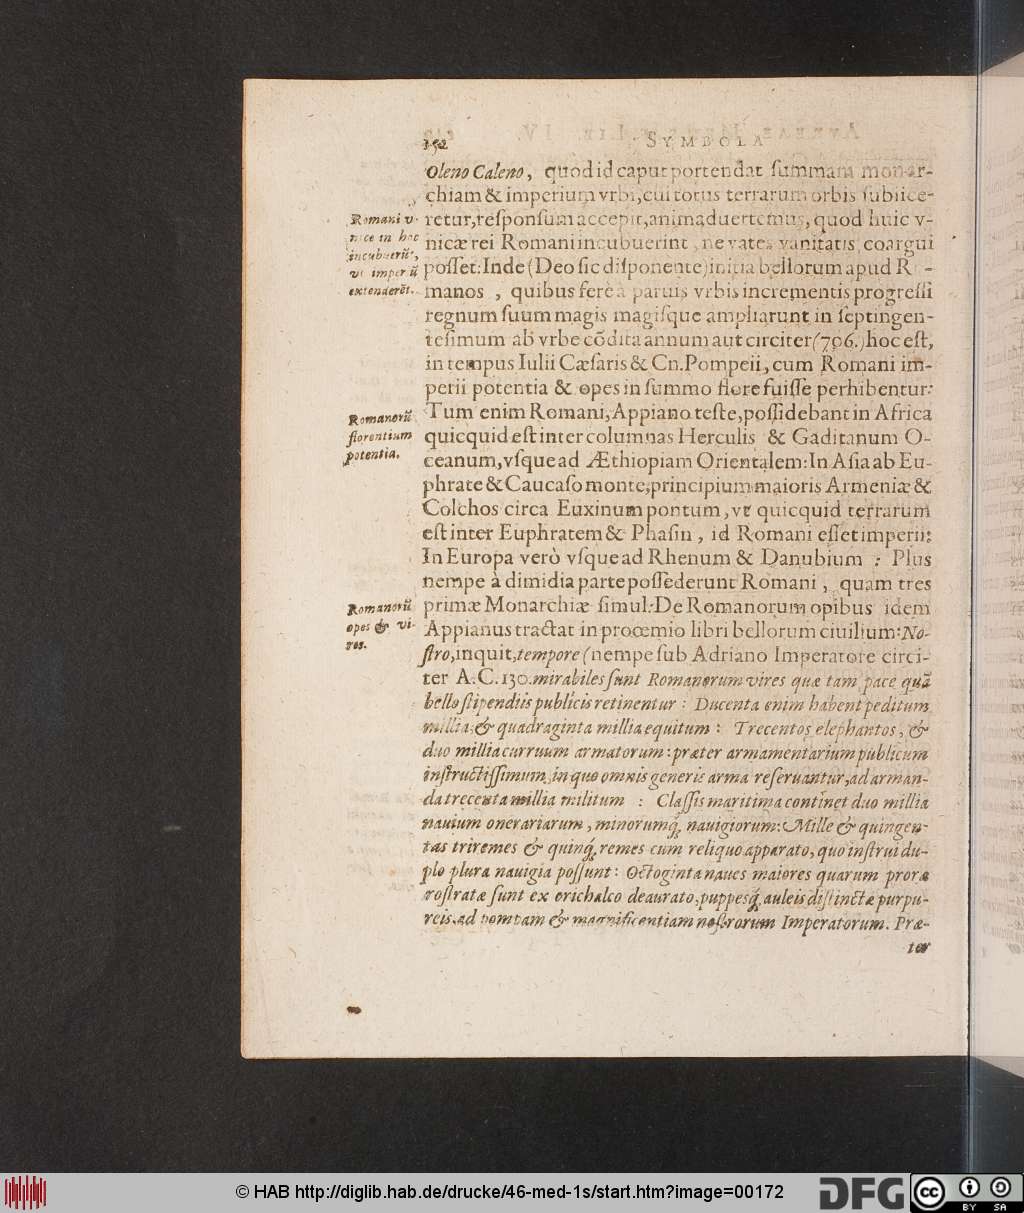 152
SYMBOLA
Oleno Caleno, quòd id caput portendat ſummam monar-
chiam & imperium vrbi, cui totus terrarum orbis ſubiice-
retur, reſponſum accepit, animaduertemus, quod huic v-
nicæ rei Romani incubuerint, ne vates vanitatis coargui
poſſet: Inde (Deo ſic diſponente) initia bellorum apud Ro-
manos, quibus ferè à paruis vrbis incrementis progreſſi
regnum ſuum magis magiſque ampliarunt in ſeptingen-
teſimum ab vrbe cõdita annum aut circiter (706.) hoc eſt,
in tempus Iulii Cæſaris & Cn. Pompeii, cum Romani im-
perii potentia & opes in ſummo flore fuiſſe perhibentur:
Tum enim Romani, Appiano teſte, poſſidebant in Africa
quicquid eſt inter columnas Herculis & Gaditanum O-
ceanum, vſque ad Æthiopiam Orientalem: In Aſia ab Eu-
phrate & Caucaſo monte, principium maioris Armeniæ &
Colchos circa Euxinum pontum, vt quicquid terrarum
eſt inter Euphratem & Phaſin, id Romani eſſet imperii:
In Europa verò vſque ad Rhenum & Danubium : Plus
nempe à dimidia parte poſſederunt Romani, quam tres
primæ Monarchiæ ſimul: De Romanorum opibus idem
Appianus tractat in proœmio libri bellorum ciuilium: No-
ſtro, inquit, tempore (nempe ſub Adriano Imperatore circi-
ter A. C. 130. mirabiles ſunt Romanorum vires quæ tam pace quã
bello ſtipendiis publicis retinentur : Ducenta enim habent peditum
millia, & quadraginta millia equitum : Trecentos elephantos, &
duo millia curruum armatorum: præter armamentarium publicum
inſtructiſſimum, in quo omnis generis arma reſeruantur, ad arman-
da trecenta millia militum : Claſſis maritima continet duo millia
nauium onerariarum, minorumq́; nauigiorum: Mille & quingen-
tas triremes & quinq́; remes cum reliquo apparato, quo inſtrui du-
plo plura nauigia poſſunt: Octoginta naues maiores quarum proræ
roſtratæ ſunt ex orichalco deaurato, puppesq́; auleis diſtinctæ purpu-
reis, ad pompam & magnificentiam noſtrorum Imperatorum. Præ-
ter
Romani v-
nice in hoc
incubuerũt,
vt imperiũ
extenderẽt.
Romanorũ
florentium
potentia.
Romanorũ
opes & vi-
res.
© HAB http://diglib.hab.de/drucke/46-med-1s/start.htm?image=00172
DFG
cc
BY SA